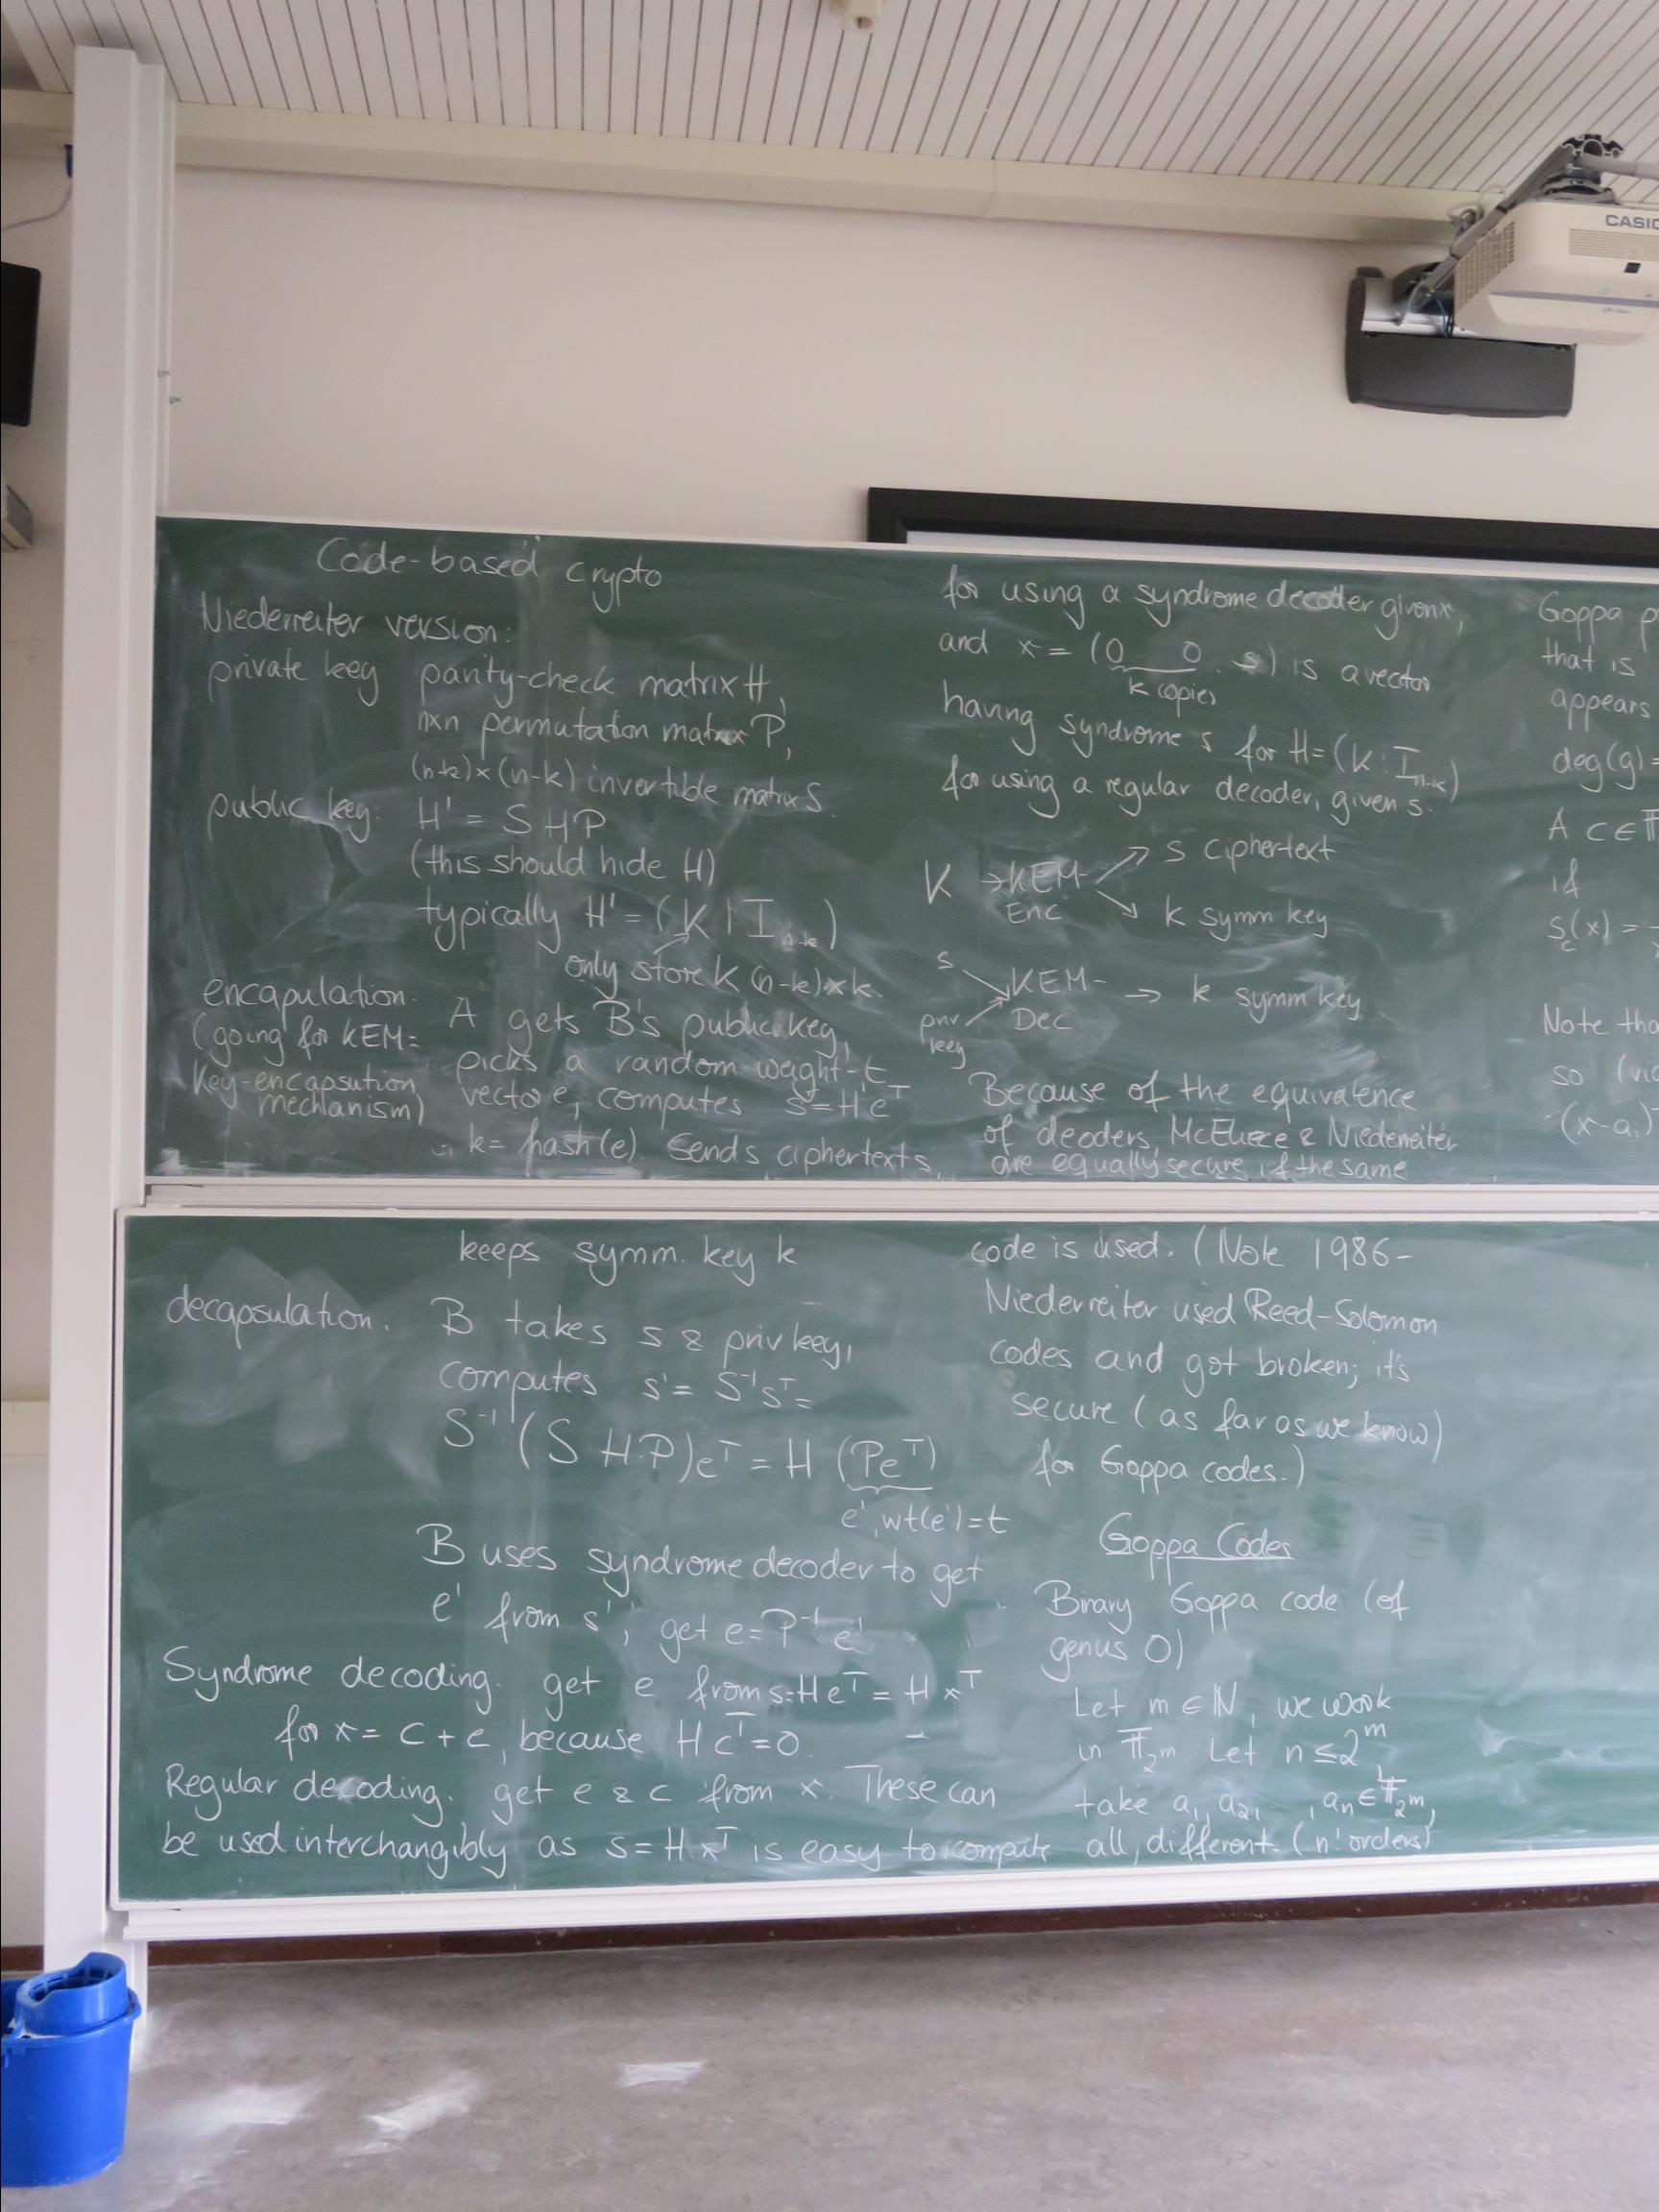 CASIO
Code-based crypto
Niederreiter version:
private key parity-check matrix H,
n×n permutation matrix P,
(n-k)×(n-k) invertible matrix S.
public key: H' = S H P
(this should hide H)
typically H' = (K | I_{n-k})
only store K (n-k)×k.
encapulation:
(going for KEM =
key-encapsution
mechanism)
A gets B's public key,
picks a random weight-t
vector e, computes s = H'e^T
k = hash(e). Sends ciphertext s,
keeps symm. key k
decapsulation. B takes s & priv key,
computes s' = S^{-1}s^T =
S^{-1}(S H P)e^T = H (Pe^T)
e', wt(e') = t
B uses syndrome decoder to get
e' from s'; get e = P^{-1} e'.
Syndrome decoding. get e from s = He^T = Hx^T
for x = c + e, because Hc^T = 0.
Regular decoding. get e & c from x. These can
be used interchangibly as s = Hx^T is easy to compute
for using a syndrome decoder given x,
and x = (0 0 s) is a vector
k copies
having syndrome s for H = (K | I_{n-k})
for using a regular decoder, given s.
K → KEM- Enc
s ciphertext
k symm key
s
priv key
KEM- Dec → k symm key
Because of the equivalence
of deoders McEliece & Niederreiter
are equally secure if the same
code is used. (Note 1986-
Niederreiter used Reed-Solomon
codes and got broken; it's
secure (as far as we know)
for Goppa codes.)
Goppa Codes
Binary Goppa code (of
genus 0).
Let m ∈ N, we work
in F_{2^m}. Let n ≤ 2^m
take a_1, a_2, ..., a_n ∈ F_{2^m},
all different. (n! orders)
Goppa p
that is
appears
deg(g) =
A c ∈ F
if
S_c(x) =
Note tha
so (via
(x-a_i)